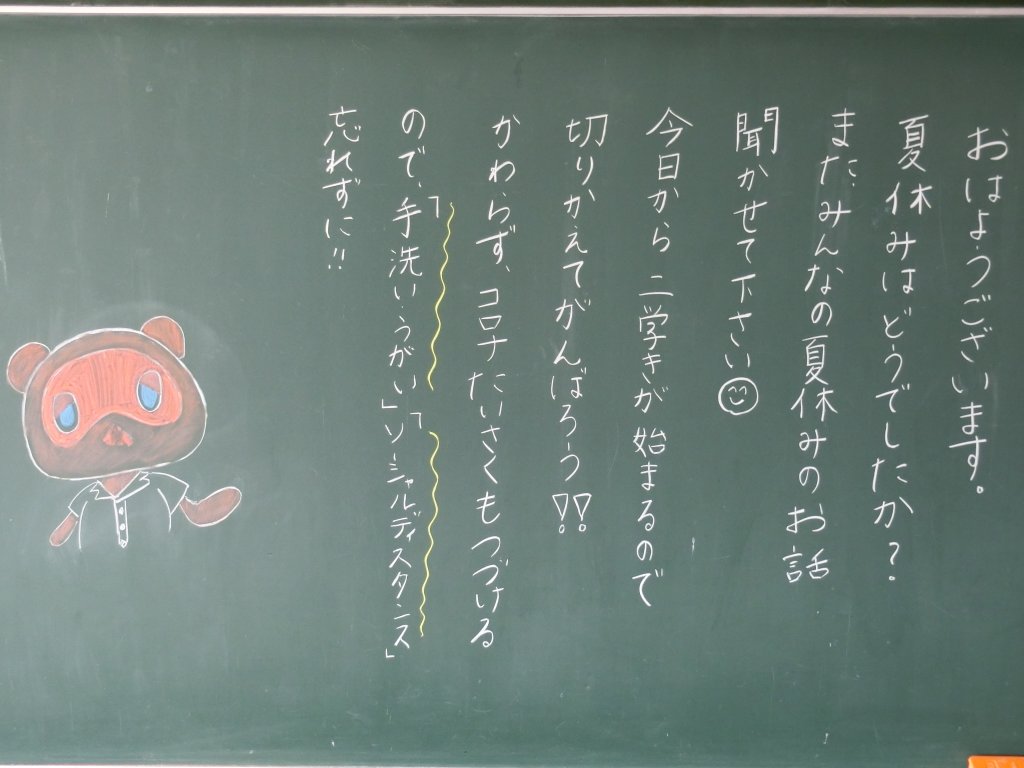 おはようございます。
夏休みはどうでしたか？
また、みんなの夏休みのお話
聞かせて下さい
今日から二学きが始まるので
切りかえてがんばろーう!!
かわらず、コロナたいさくもつづける
ので、「手洗いうがい」「ソーシャルディスタンス」
忘れずに!!